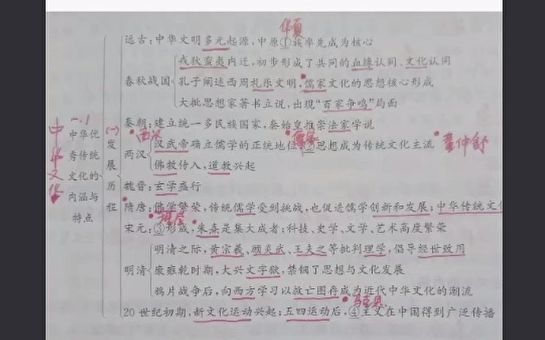 华夏
远古:中华文明多元起源,中原①族率先成为核心
戎狄蛮夷内迁,初步形成了共同的血缘认同、文化认同
春秋战国
孔子阐述西周礼乐文明,儒家文化的思想核心形成
大批思想家著书立说,出现“百家争鸣”局面
秦朝:建立统一多民族国家,秦始皇推崇法家学说
西汉
汉武帝确立儒学的正统地位,②思想成为传统文化主流
儒家
董仲舒
两汉
佛教传入,道教兴起
中华文化
一、1
中华优
秀传统
文化的
内涵与
特点
(一)
发展历程
魏晋:玄学盛行
隋唐:佛学繁荣,传统儒学受到挑战,也促进儒学创新和发展;中华传统文
宋元:③形成,朱熹是集大成者;科技、史学、文学、艺术高度繁荣
理学
明清之际,黄宗羲、顾炎武、王夫之等批判理学,倡导经世致用
明清
康雍乾时期,大兴文字狱,禁锢了思想与文化发展
鸦片战争后,向西方学习以救亡图存成为近代中华文化的潮流
马克思
20世纪初期,新文化运动兴起;五四运动后,④主义在中国得到广泛传播